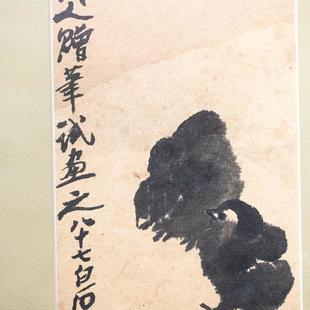 人贈筆試畫之八十七白石